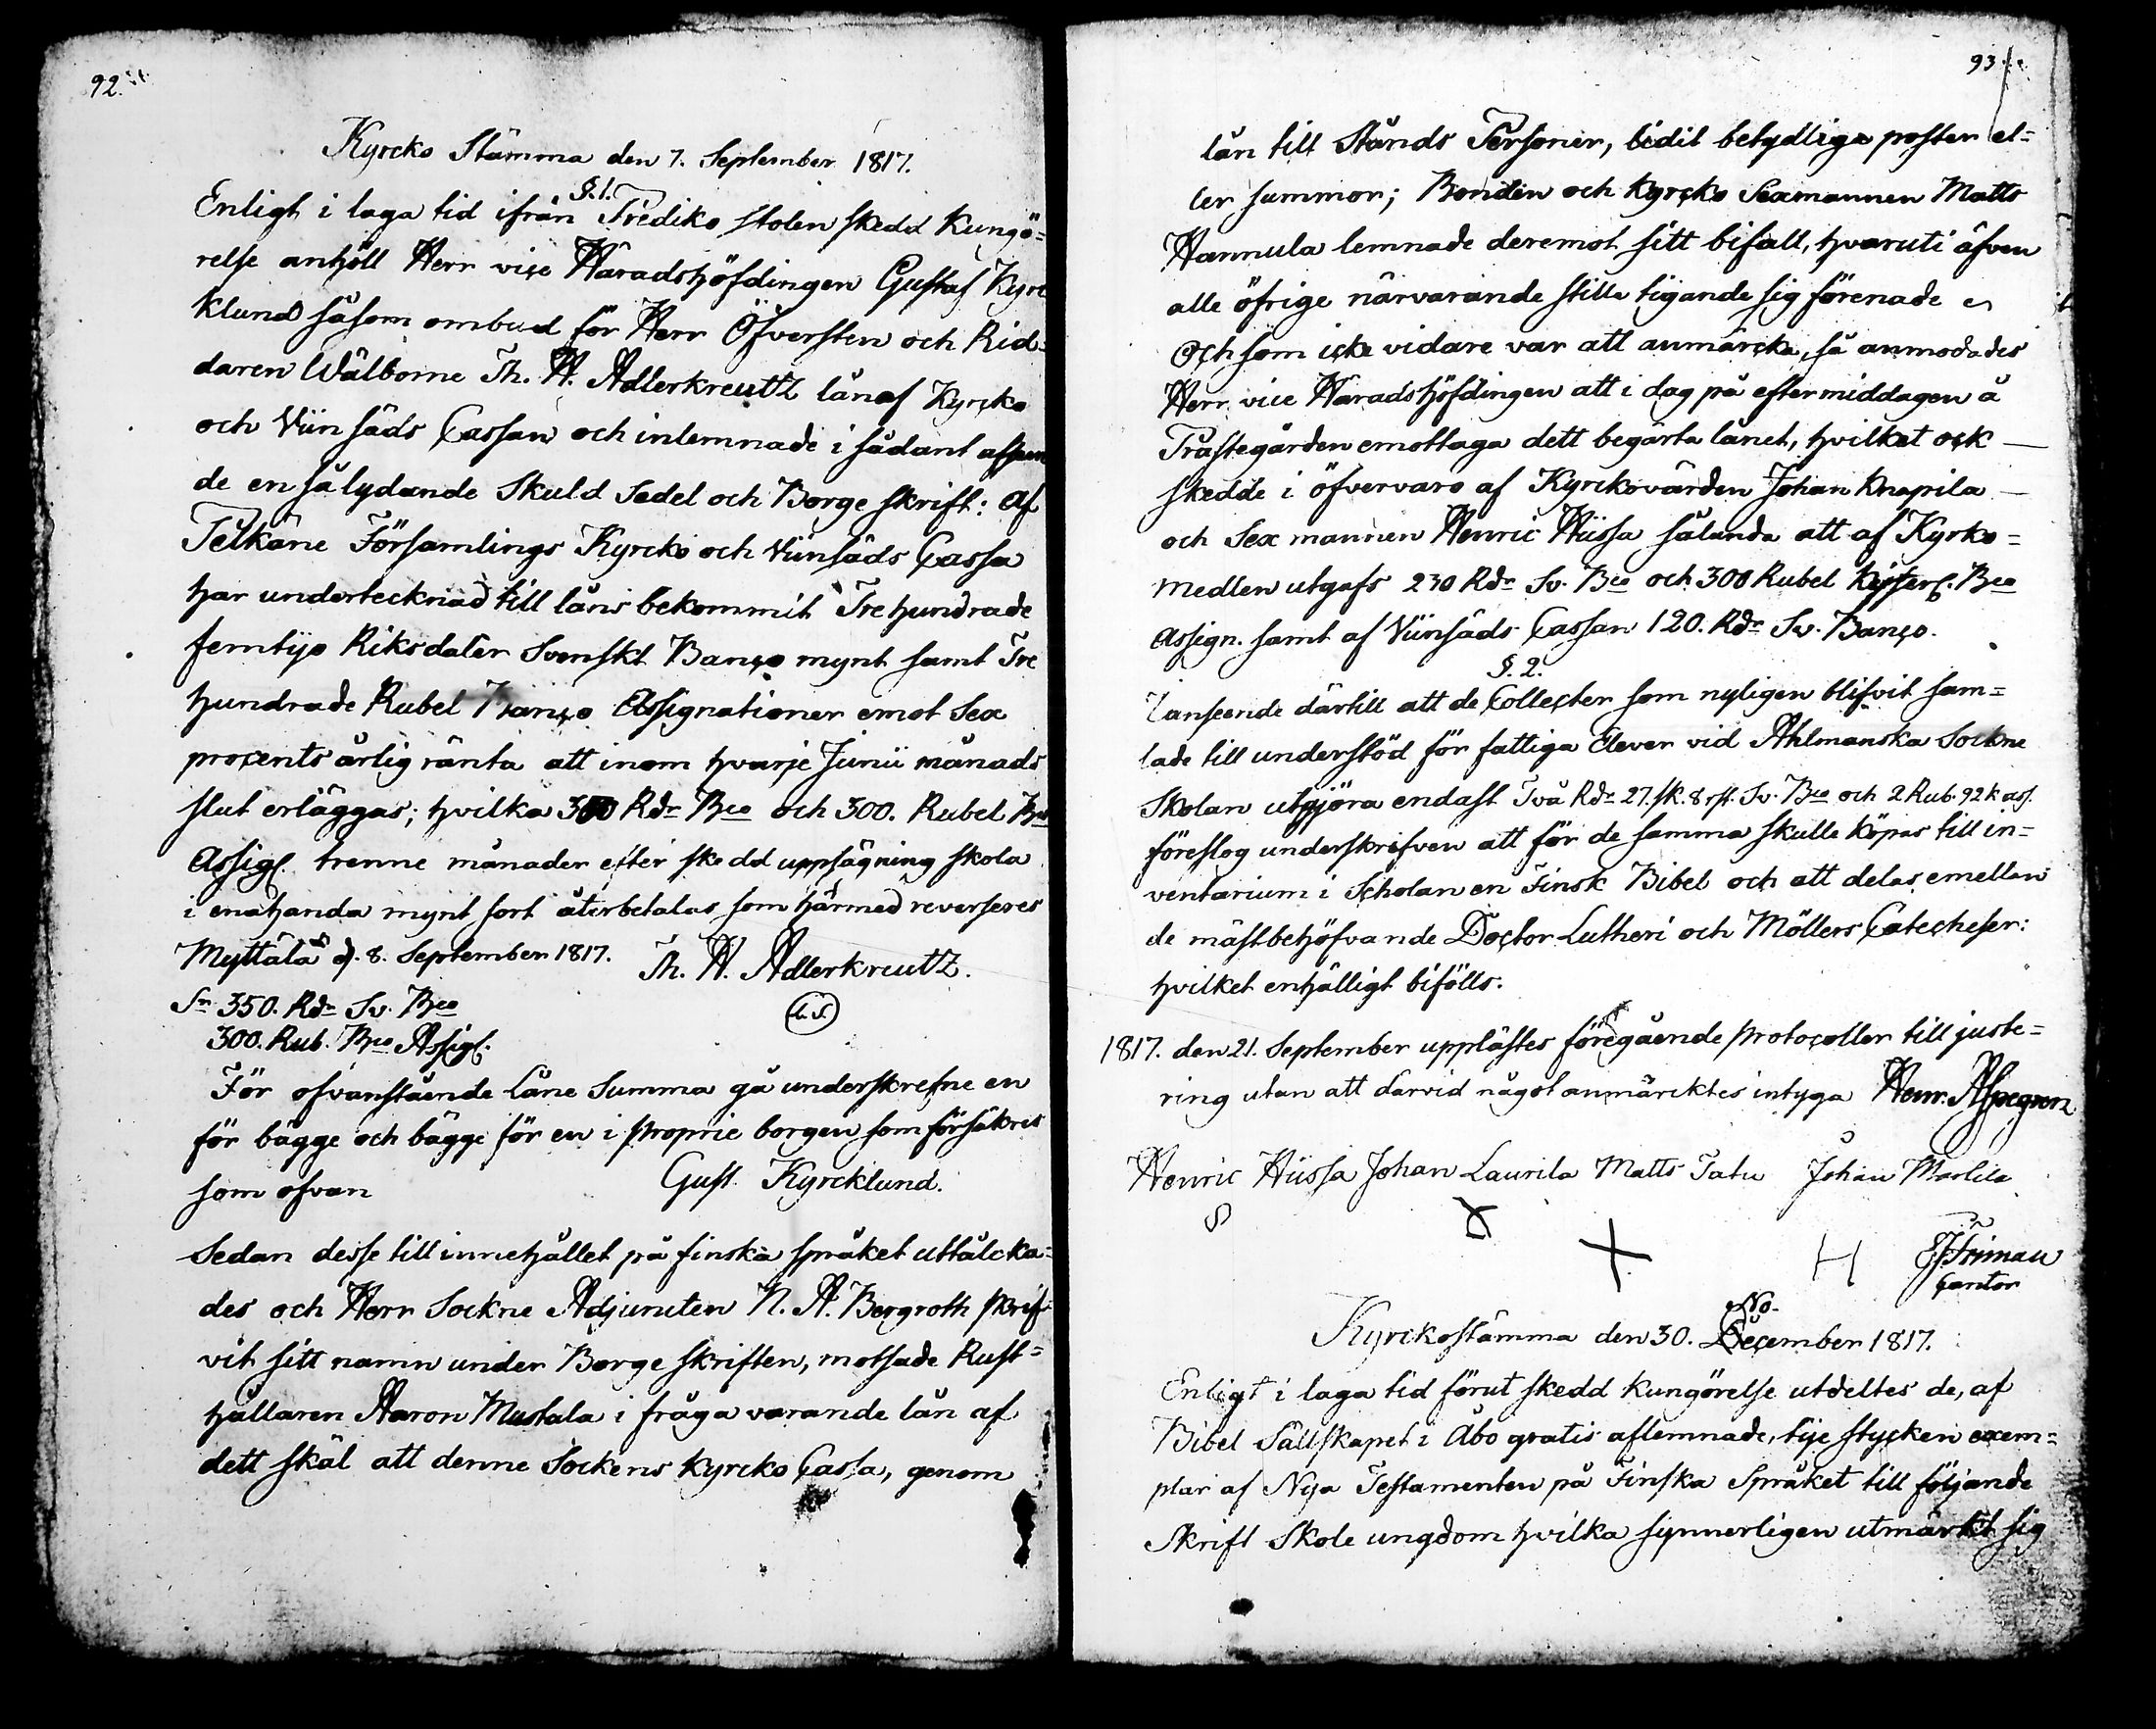 92.
Kyrcko Stämma den 7. September 1817.
§.1.
Enligt i laga tid ifrån Prediko stolen skedd Kungö=
relse anhöll Herr vice Häradshöfdingen Gustaf Kyrc
klund såsom ombud för Herr Öfversten och Rid=
daren Wälborne Th. A. Adlerkreutz lån af Kyrcko
och Viinsäds Cassan och inlemnade i sådant afseen
de en så lydande Skuld Sedel och Borge skrift: Af
Pelkäne Församlings Kyrcko och Viinsäds Cassa
har undertecknad till låns bekommit Trehundrade
femtijo Riksdaler Svenskt Banço mynt samt Tre
hundrade Rubel Banço Assignationer emot Sex
procents årlig ränta att inom hvarje Junii månads
slut erläggas; hvilka 350 Rdr Bco och 300. Rubel Bco
Assig. trenne månader efter skedd uppsägning skola
i enahanda mynt sort återbetalas som härmed reverseres
Myttälä d. 8. September 1817. Th. A. Adlerkreutz.
Sr 350. Rdr Sv. Bco (L.S.)
300. Rub. Bco Assig.
För ofvanstående Låne Summa gå underskrefne en
för bägge och bägge för en i proprie borgen som försäkres
som ofvan Gust. Kyrcklund.
Sedan desse till innehållet på finska språket uttålcka=
des och Herr Sockne Adjuncten N. A. Bergroth skrif
vit sitt namn under Borge skriften, motsade Rust=
hållaren Aaron Mustala i fråga varande lån af
dett skäl att denne Sockens Kyrcko Cassa, genom
93
lån till Stånds Personer, lidit betydliga poster el=
ler summor; Bonden och Kyrcko Sexmannen Matts
Hannula lemnade deremot sitt bifall, hvaruti äfven
alle öfrige närvarande stilla tigande sig förenade
Och som icke vidare var att anmärcka, så anmodades
Herr vice Häradshöfdingen att i dag på eftermiddagen å
Prästegården emottaga dett begärta lånet, hvilket ock
skedde i öfvervaro af Kyrckovärden Johan Knapila
och Sex mannen Henric Hiissa sålunda att af Kyrko=
medlen utgafs 230 Rdr Sv. Bco och 300 Rubel Kejserl. Bco
Assign. samt af Viinsäds Cassan 120. Rdr Sv. Banço.
§. 2.
I anseende därtill att de Collecter som nyligen blifvit sam=
lade till understöd för fattiga Elever vid Ahlmanska Sockne
Skolan utgjöra endast Två Rdr 27. sk. 8 rst. Sv. Bco och 2 Rub. 92 k ass.
föreslog underskrifven att för de samma skulle köpas till in=
ventarium i Scholan en Finsk Bibel och att delas emellan
de mästbehöfvande Doctor Lutheri och Möllers Catecheser:
hvilket enhälligt bifölls.
1817. den 21. September upplästes föregående protocoller till juste=
ring utan att därvid något anmärcktes intyga Henr. Aspegren
Henric Hiissa Johan Laurila Matts Tatu Johan Marlila
Friman
Cantor
No-
Kyrckostämma den 30. December 1817.
Enligt i laga tid förut skedd kungörelse utdeltes de, af
Bibel Sällskapet i Åbo gratis aflemnade, tije stycken exem=
plar af Nya Testamenten på Finska Språket till följande
Skrift Skole ungdom hvilka synnerligen utmärkt sig